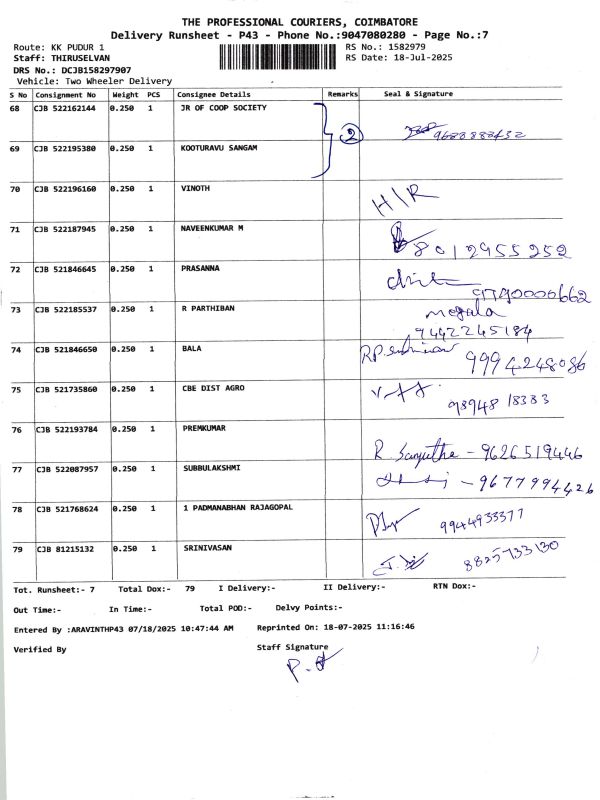 THE PROFESSIONAL COURIERS, COIMBATORE
Delivery Runsheet - P43 - Phone No.:9047080280 - Page No.:7
Route: KK PUDUR 1 RS No.: 1582979
Staff: THIRUSELVAN RS Date: 18-Jul-2025
DRS No.: DCJB158297907
Vehicle: Two Wheeler Delivery
S No Consignment No Weight PCS Consignee Details Remarks Seal & Signature
68 CJB 522162144 0.250 1 JR OF COOP SOCIETY
2 9688888432
69 CJB 522195380 0.250 1 KOOTURAVU SANGAM
70 CJB 522196160 0.250 1 VINOTH H/R
71 CJB 522187945 0.250 1 NAVEENKUMAR M 8012955252
72 CJB 521846645 0.250 1 PRASANNA
9790000662
73 CJB 522185537 0.250 1 R PARTHIBAN megala
9442245184
74 CJB 521846650 0.250 1 BALA 9994248086
75 CJB 521735860 0.250 1 CBE DIST AGRO 98948 18383
76 CJB 522193784 0.250 1 PREMKUMAR R Sanyutha - 9626519446
77 CJB 522087957 0.250 1 SUBBULAKSHMI - 9677994426
78 CJB 521768624 0.250 1 1 PADMANABHAN RAJAGOPAL 9944933377
79 CJB 81215132 0.250 1 SRINIVASAN 8825733130
Tot. Runsheet:- 7 Total Dox:- 79 I Delivery:- II Delivery:- RTN Dox:-
Out Time:- In Time:- Total POD:- Delvy Points:-
Entered By :ARAVINTHP43 07/18/2025 10:47:44 AM Reprinted On: 18-07-2025 11:16:46
Verified By Staff Signature